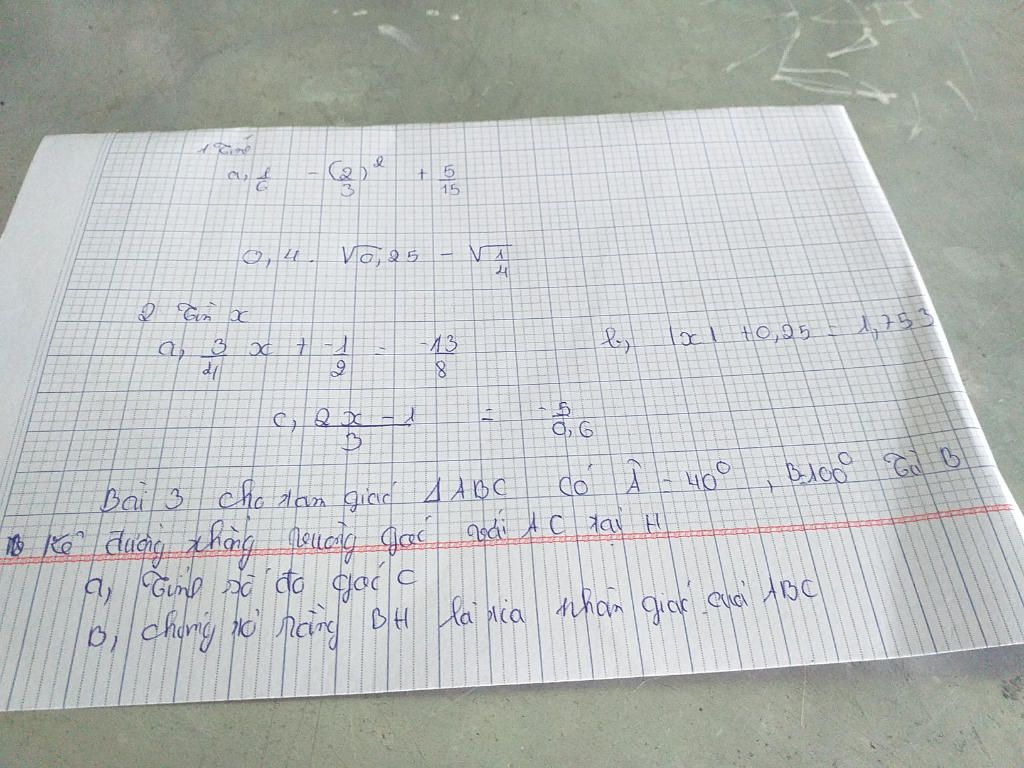 1 Tính
a, 1/6 - (2/3)² + 5/15
0,4. √0,25 - √1/4
2 Tìm x
a, 3/4 x + -1/2 = -13/8 b, |x| +0,25 = 1,753
c, 2x - 1/3 = -5/0,6
Bài 3 cho tam giác ΔABC có Â = 40⁰, B=100⁰ Từ B
kẻ đường thẳng vuông góc với AC tại H
a, Tính số đo góc C
B, chứng tỏ rằng BH là tia phân giác của ABC